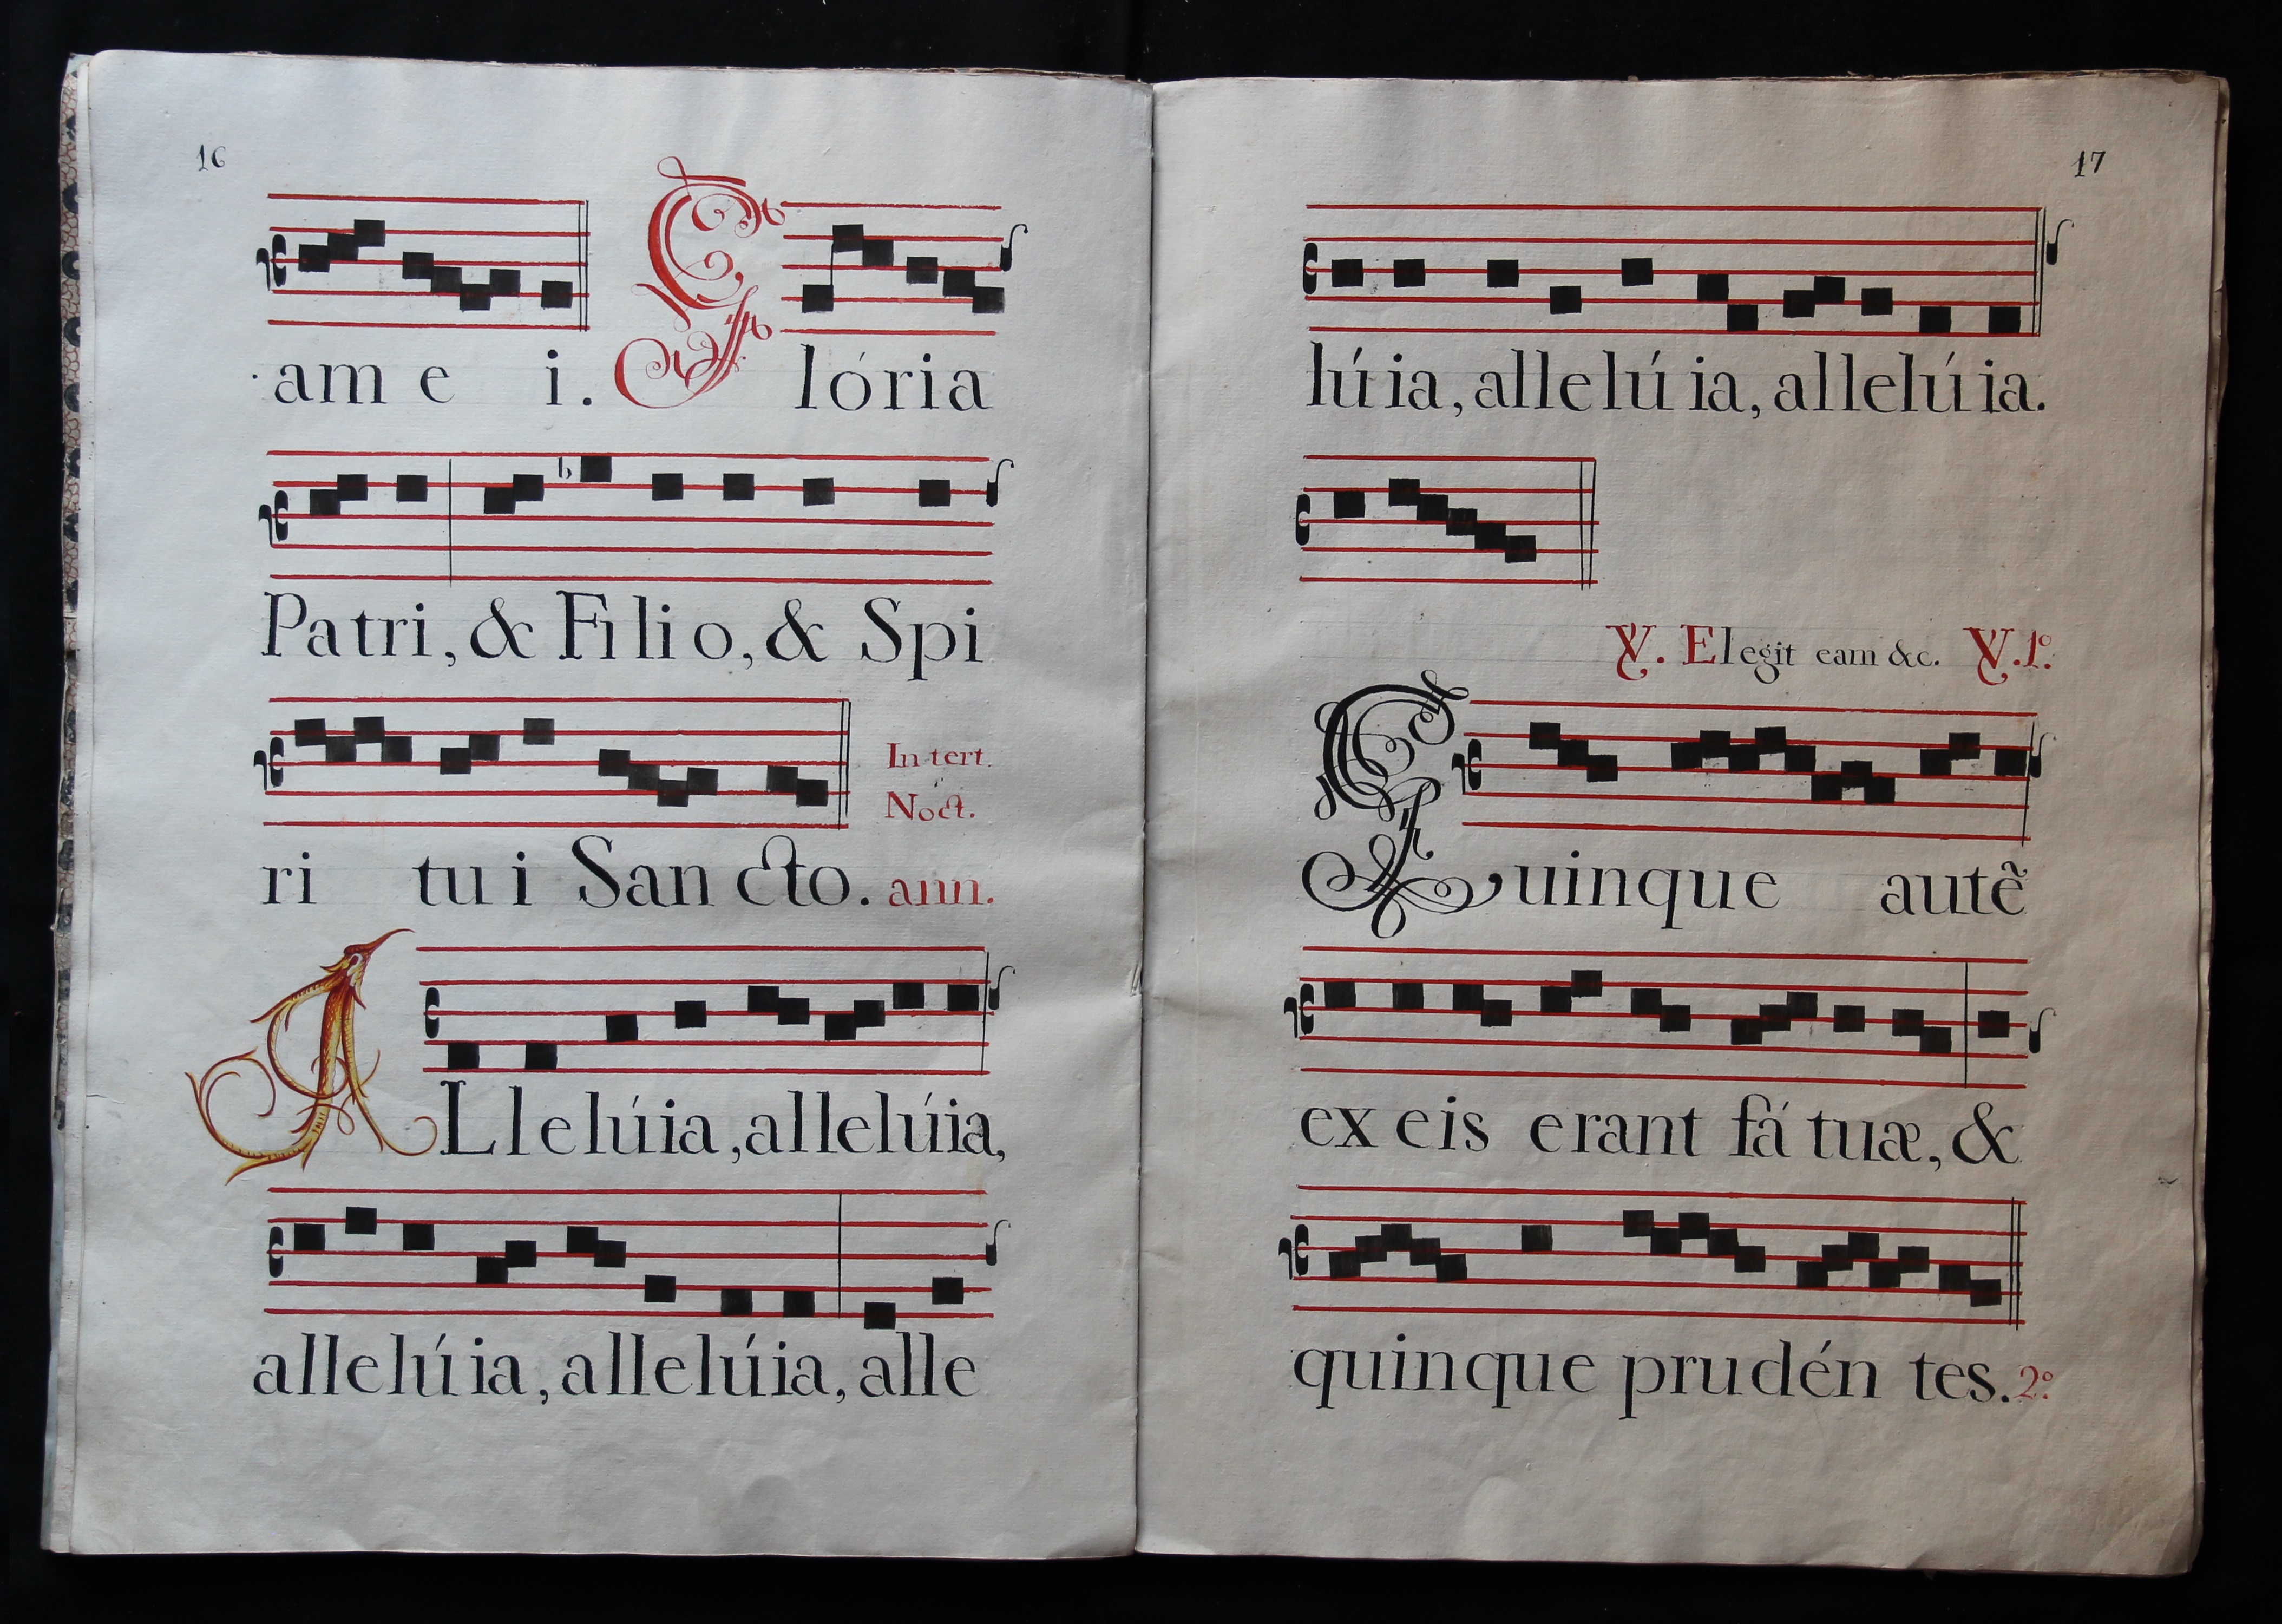 16
am e i. Glória
Patri, & Filio, & Spi
In tert.
Noct.
ri tu i San cto. ann.
ALlelúia, allelúia,
allelú ia, allelúia, alle
17
lú ia, allelú ia, allelú ia.
℣. Elegit eam &c. ℣. 1º.
Quinque autẽ
ex eis erant fá tuæ, &
quinque prudén tes. 2º.